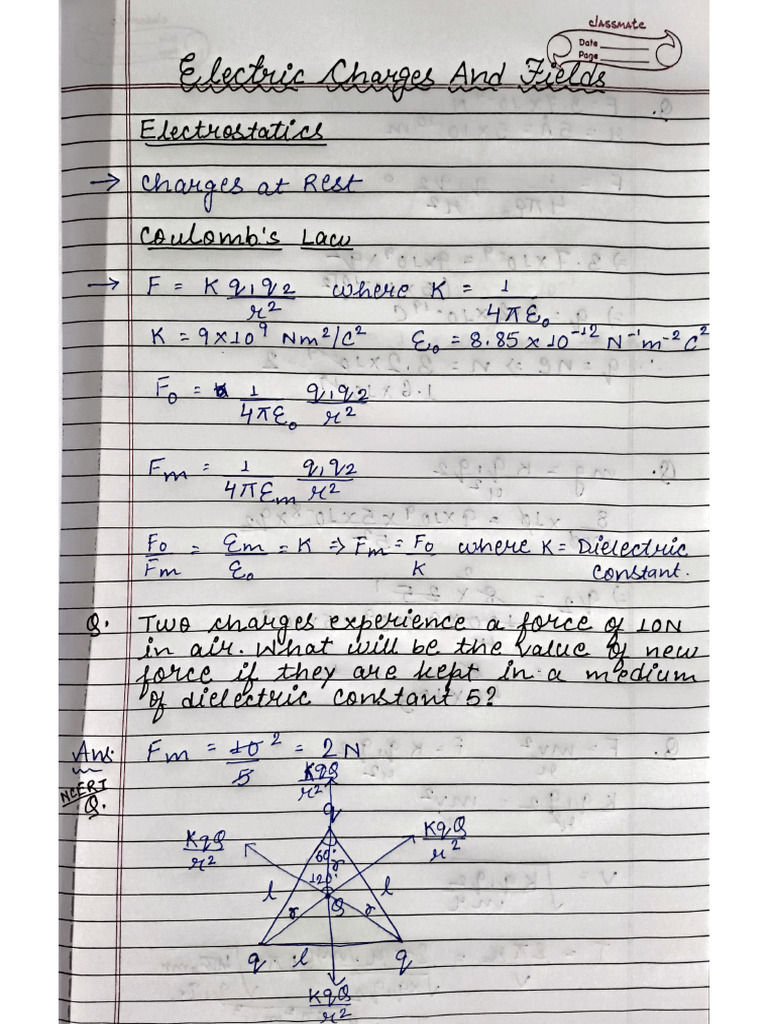 classmate
Date
Page
Electric Charges And Fields
Electrostatics
→ Charges at Rest
Coulomb's Law
→ F = K q₁q₂/r² where K = 1/4πε₀
K = 9×10⁹ Nm²/C² ε₀ = 8.85 × 10⁻¹² N⁻¹m⁻²C²
F₀ = 1/4πε₀ q₁q₂/r²
Fm = 1/4πεm q₁q₂/r²
F₀/Fm = εm/ε₀ = K ⇒ Fm = F₀/K where K = Dielectric
constant.
Q. Two charges experience a force of 10N
in air. What will be the value of new
force if they are kept in a medium
of dielectric constant 5?
Ans. Fm = 10/5 2 = 2 N
NCERT
Q.
KqQ/r²
q
KqQ/r² KqQ/r²
60° r
120°
l l
Q
r r
q l q
KqQ/r²